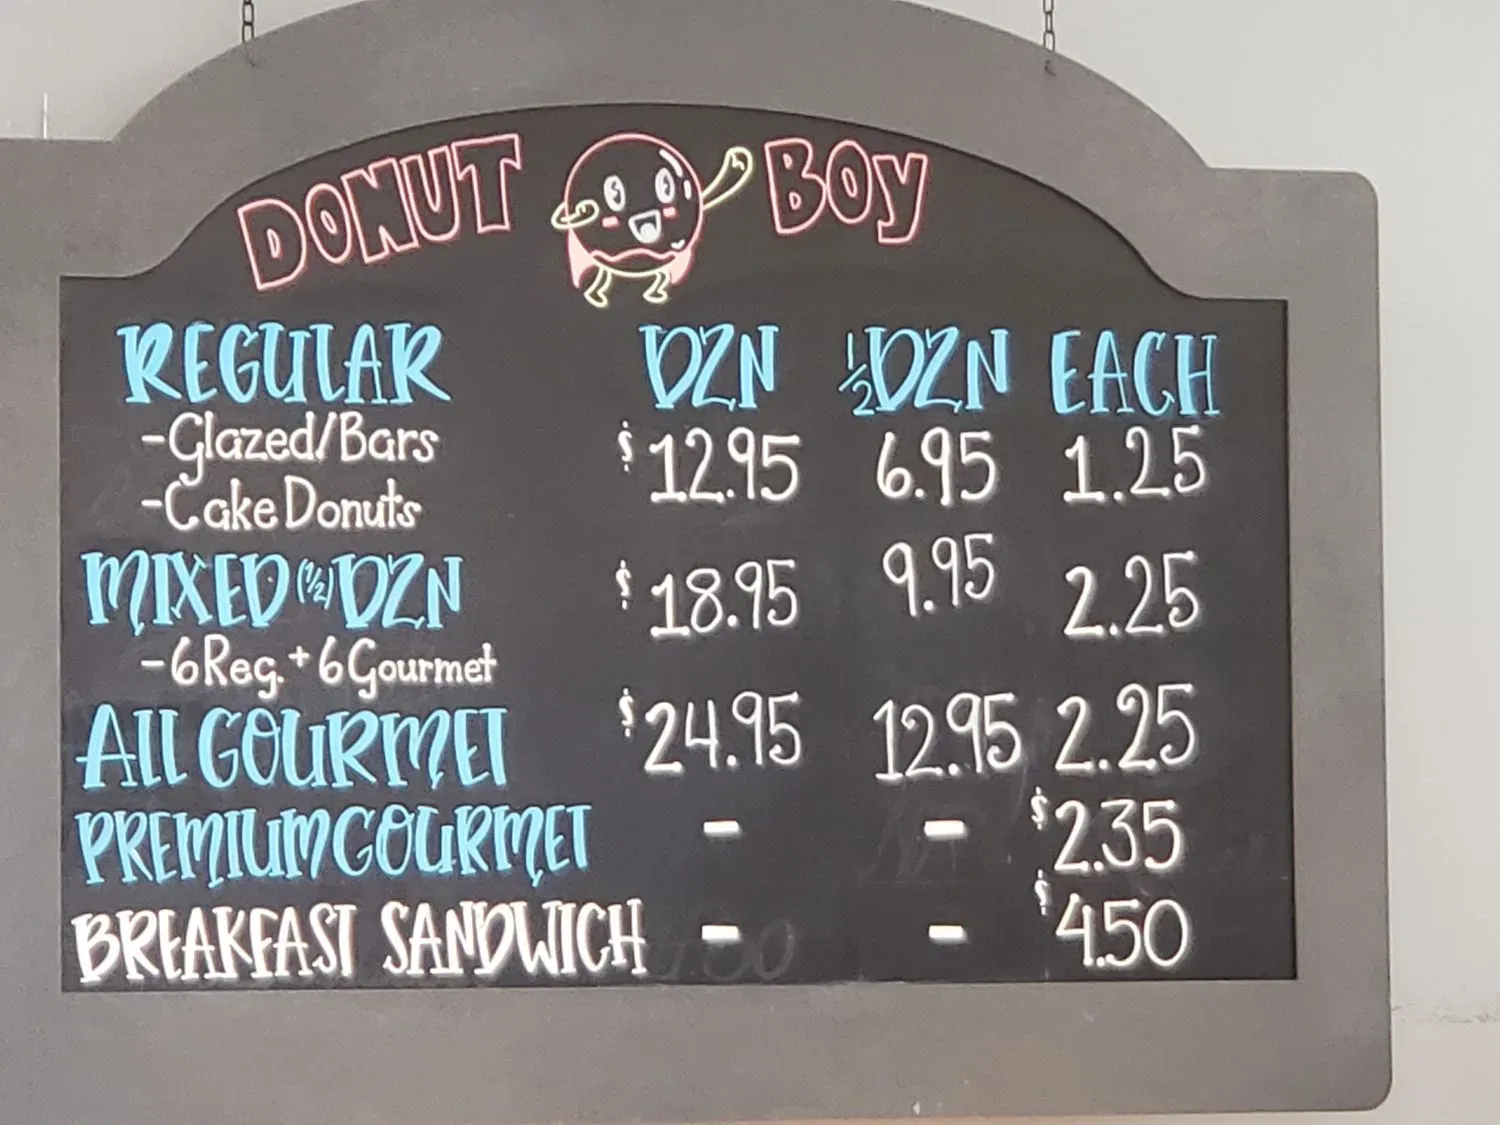 DONUT BOY
REGULAR DZN ½DZN EACH
-Glazed/Bars $12.95 6.95 1.25
-Cake Donuts
MIXED (½) DZN $18.95 9.95 2.25
-6 Reg. + 6 Gourmet
ALL GOURMET $24.95 12.95 2.25
PREMIUM GOURMET - - $2.35
BREAKFAST SANDWICH - - $4.50